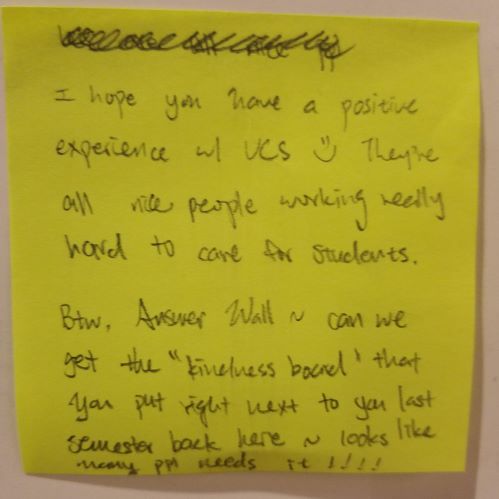 I hope you have a positive
experience w/ UCS :) They're
all nice people working really
hard to care for students.
Btw, Answer Wall ~ can we
get the "kindness board" that
you put right next to you last
semester back here ~ looks like
many ppl needs it !!!!